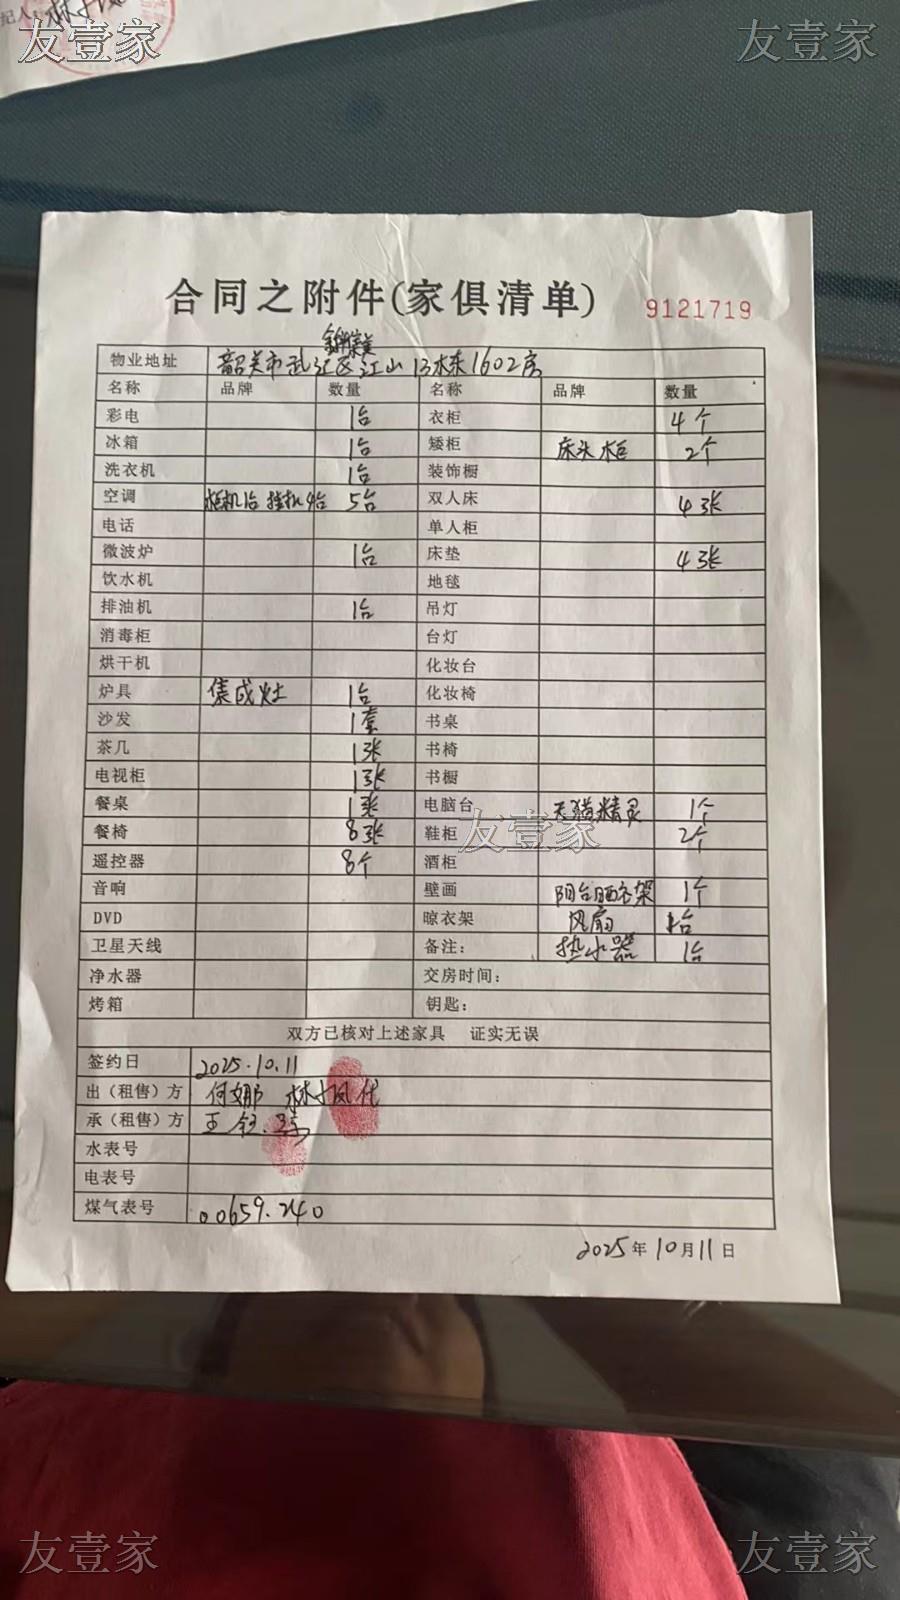 纪人：
友壹家
友壹家
合同之附件(家俱清单)
9121719
物业地址 韶关市武江区江山13栋1602房
名称 品牌 数量 名称 品牌 数量
彩电 1台 衣柜 4个
冰箱 1台 矮柜 床头柜 2个
洗衣机 1台 装饰橱
空调 柜机1台 挂机4台 5台 双人床 4张
电话 单人柜
微波炉 1台 床垫 4张
饮水机 地毯
排油机 1台 吊灯
消毒柜 台灯
烘干机 化妆台
炉具 集成灶 1台 化妆椅
沙发 1套 书桌
茶几 1张 书椅
电视柜 1张 书橱
餐桌 1张 电脑台 天猫精灵 1个
餐椅 8张 鞋柜 2个
友壹家
遥控器 8个 酒柜
音响 壁画 阳台晒衣架 1个
DVD 晾衣架 风扇 台
卫星天线 备注： 热水器 1台
净水器 交房时间：
烤箱 钥匙：
双方已核对上述家具 证实无误
签约日 2025.10.11
出（租售）方 何娜 林 凤代
承（租售）方 王
水表号
电表号
煤气表号 00659.240
2025年10月11日
友壹家
友壹家